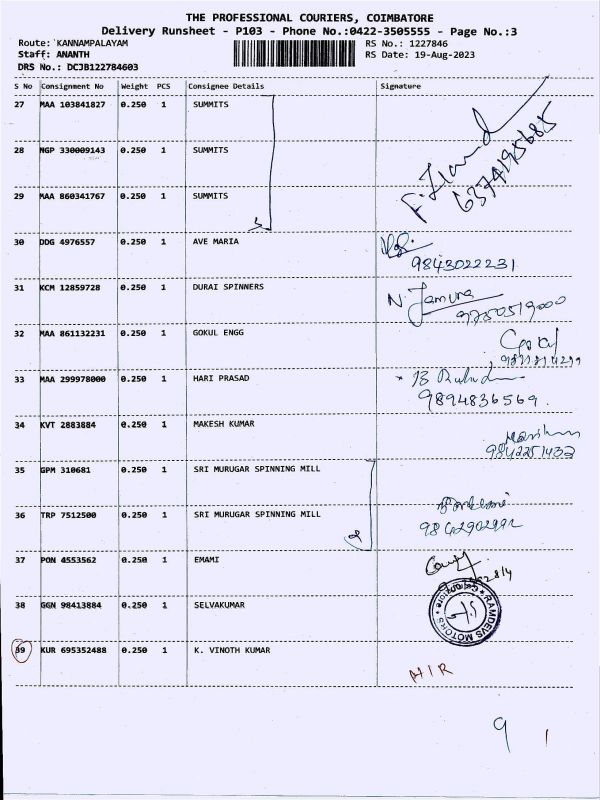 THE PROFESSIONAL COURIERS, COIMBATORE
Delivery Runsheet - P103 - Phone No.:0422-3505555 - Page No.:3
Route: KANNAMPALAYAM
RS No.: 1227846
Staff: ANANTH
RS Date: 19-Aug-2023
DRS No.: DCJB122784603
S No Consignment No Weight PCS Consignee Details Signature
27 MAA 103841827 0.250 1 SUMMITS
28 NGP 330009143 0.250 1 SUMMITS
6374195685
29 MAA 860341767 0.250 1 SUMMITS
3
30 DDG 4976557 0.250 1 AVE MARIA
9843022231
31 KCM 12859728 0.250 1 DURAI SPINNERS
N. Jamuna
9750519000
32 MAA 861132231 0.250 1 GOKUL ENGG
33 MAA 299978000 0.250 1 HARI PRASAD
9894836569.
34 KVT 2883884 0.250 1 MAKESH KUMAR
9842251432
35 GPM 310681 0.250 1 SRI MURUGAR SPINNING MILL
36 TRP 7512500 0.250 1 SRI MURUGAR SPINNING MILL
2
37 PON 4553562 0.250 1 EMAMI
38 GGN 98413884 0.250 1 SELVAKUMAR
RAMDEVS MOTORS
39 KUR 695352488 0.250 1 K. VINOTH KUMAR
HIR
9 1